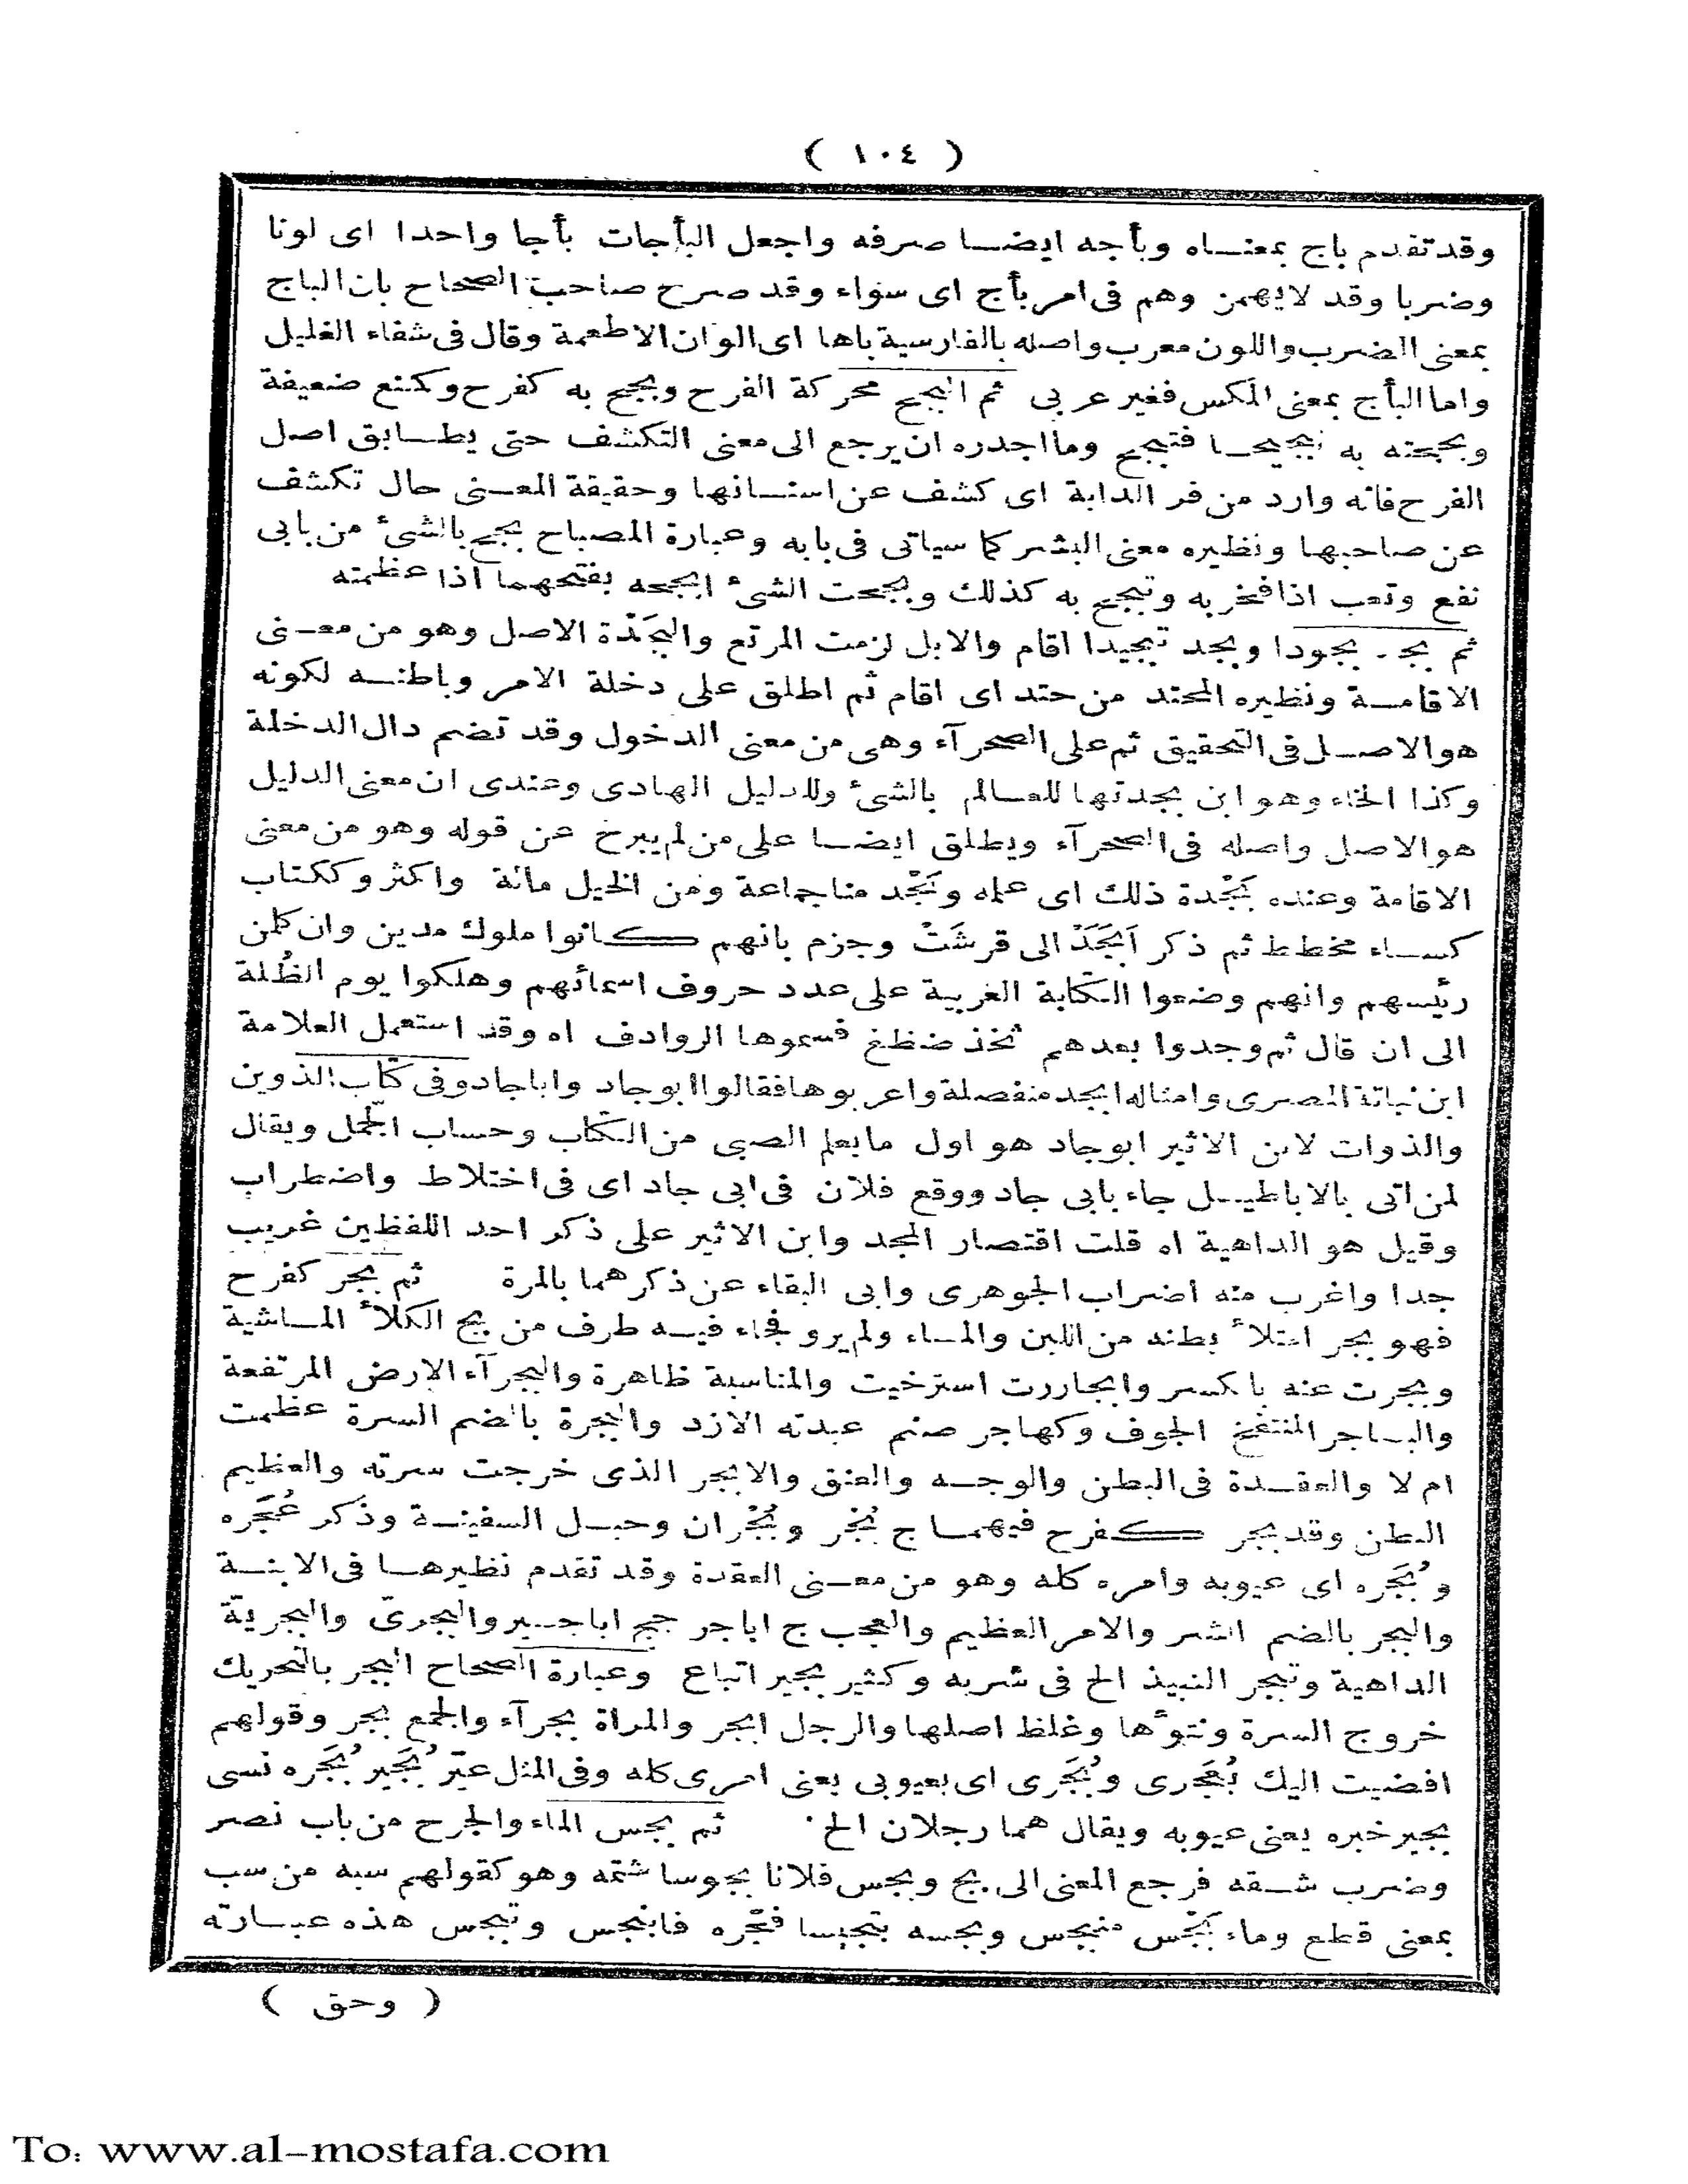 ( ١٠٤ )
وقد تقدم باج بمعنـاه وبأجه ايضـا صرفه واجعل البأجات بأجا واحدا اى لونا
وضربا وقد لايهمز وهم فى امر بأج اى سواء وقد صرح صاحب الصحاح بان الباج
بمعنى الضرب واللون معرب واصله بالفارسية باها اى الوان الاطعمة وقال فى شفاء الغليل
واما البأج بمعنى المكس فغير عربى ثم البجح محركة الفرح وبجح به كفرح وكمنع ضعيفة
وبجحته به تبجيحـا فتبجح وما اجدره ان يرجع الى معنى التكشف حتى يطـابق اصل
الفرح فانه وارد من فر الدابة اى كشف عن اسنـانها وحقيقة المعـنى حال تكشف
عن صاحبها ونظيره معنى البشر كما سياتى فى بابه وعبارة المصباح بجح بالشئ من بابى
نفع وتعب اذا فخر به وتبجح به كذلك وبجحت الشئ ابجحه بفتحهما اذا عظمته
ثم بجد بجودا وبجد تبجيدا اقام والابل لزمت المرتع والبَجْدة الاصل وهو من معـنى
الاقامـة ونظيره المحتد من حتد اى اقام ثم اطلق على دخلة الامر وباطنـه لكونه
هو الاصـل فى التحقيق ثم على الصحرآء وهى من معنى الدخول وقد تضم دال الدخلة
وكذا الخاء وهو ابن بجدتها للعـالم بالشئ وللدليل الهادى وعندى ان معنى الدليل
هو الاصل واصله فى الصحرآء ويطلق ايضـا على من لم يبرح عن قوله وهو من معنى
الاقامة وعنده بَجْدة ذلك اى علمه وبَجْد منا جماعة ومن الخيل مائة واكثر وككتاب
كسـاء مخطط ثم ذكر اَبْجَدْ الى قرشَتْ وجزم بانهم كانوا ملوك مدين وان كلمن
رئيسهم وانهم وضعوا الكتابة العربية على عدد حروف اسمائهم وهلكوا يوم الظُلة
الى ان قال ثم وجدوا بعدهم ثخذ ضظغ فسموها الروادف اه وقد استعمل العلامة
ابن نباتة المصرى وامثاله ابجد منفصلة واعربوها فقالوا ابوجاد واباجاد وفى كتاب الذوين
والذوات لابن الاثير ابوجاد هو اول مايعلم الصبى من الكتاب وحساب الجمل ويقال
لمن اتى بالاباطيـل جاء بابى جاد ووقع فلان فى ابى جاد اى فى اختلاط واضطراب
وقيل هو الداهية اه قلت اقتصار المجد وابن الاثير على ذكر احد اللفظين غريب
جدا واغرب منه اضراب الجوهرى وابى البقاء عن ذكرهما بالمرة ثم بجر كفرح
فهو بجر امتلأ بطنه من اللبن والمـاء ولم يرو فجاء فيـه طرف من بج الكلأ المـاشية
وبجرت عنه بالكسر وابجاررت استرخيت والمناسبة ظاهرة والبجرآء الارض المرتفعة
والبـاجر المنتفخ الجوف وكهاجر صنم عبدته الازد والبجرة بالضم السرة عظمت
ام لا والعقـدة فى البطن والوجـه والعنق والابجر الذى خرجت سرته والعظيم
البطن وقد بجر كفرح فيهمـا ج بُجْر وبُجْران وحبـل السفينـة وذكر عُجَره
وبُجَره اى عيوبه وامره كله وهو من معـنى العقدة وقد تقدم نظيرهـا فى الابنـة
والبجر بالضم الشر والامر العظيم والعجب ج اباجر جج اباجـير والبجرىّ والبجريّة
الداهية وتبجر النبيذ الح فى شربه وكثير بجير اتباع وعبارة الصحاح البجر بالتحريك
خروج السرة ونتوؤها وغلظ اصلها والرجل ابجر والمراة بجرآء والجمع بجر وقولهم
افضيت اليك بعُجَرى وبُجَرى اى بعيوبى يعنى امرى كله وفى المثل عيّر بُجَير بُجَره نسى
بجير خبره يعنى عيوبه ويقال هما رجلان الخ ثم بجس الماء والجرح من باب نصر
وضرب شـقه فرجع المعنى الى بج وبجس فلانا بجوسا شتمه وهو كقولهم سبه من سب
بمعنى قطع وماء بَجْس منبجس وبجسه تبجيسا فجّره فانبجس وتبجس هذه عبـارته
( وحق )
To: www.al-mostafa.com